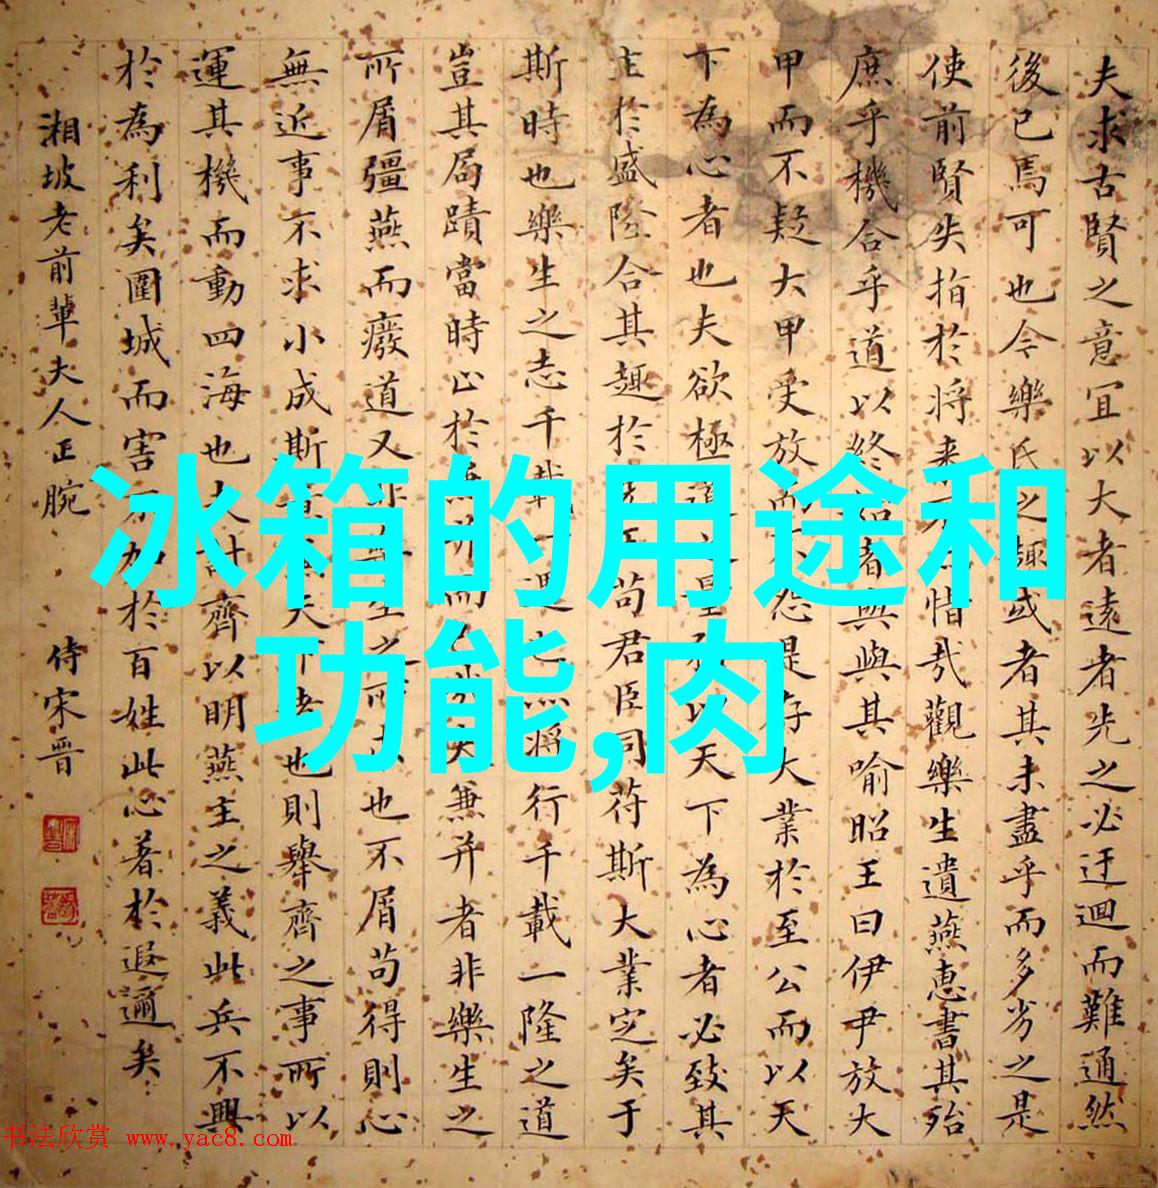 夫求古賢之意宜以大者遠者先之必迂迴而難通然
後已焉可也今樂氏之趣或者其未盡乎而多劣之是
使前賢失指於将来惜哉觀樂生遺燕惠書其殆
庶乎機合乎道以終始者與與其喻昭王曰伊尹放大
甲而不疑大甲受放而不怨是存大業於至公而以天
下為心者也夫欲極道之量務以天下為心者必致其
主於盛隆合其趣於先王苟君臣同苻斯大業定矣于
斯時也樂生之志千載一遇也亦將行千載一隆之道
豈其局蹟當時止於兼并而已哉夫兼并者非樂生之
所屑彊燕而廢道又非樂生之所求也不屑苟得則心
無近事不求小成斯意兼天下者也則舉齊之事所以
運其機而動四海也夫討齊以明燕主之義此兵不興
於為利矣圍城而害不加於百姓此心著於遐邇矣
湘坡老前輩夫人正腕 侍宋晋
冰箱的用途和
功能,肉
书法欣赏 www.yac8.com